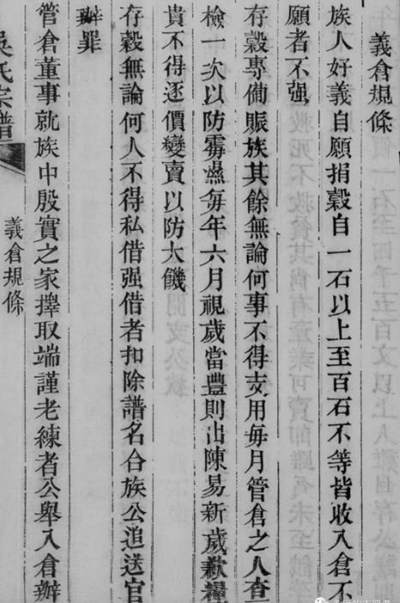 義倉規條
族人好義自願捐穀自一石以上至百石不等皆收入倉不
願者不强
存穀專備賑族其餘無論何事不得支用每月管倉之人查
檢一次以防霉㷟每年六月視歲當豊則出陳易新歲歉糧
貴不得逐價變賣以防大饑
存穀無論何人不得私借强借者扣除譜名合族公追送官
辦罪
管倉董事就族中殷實之家擇取端謹老練者公舉入倉辦
吳氏宗譜
義倉規條